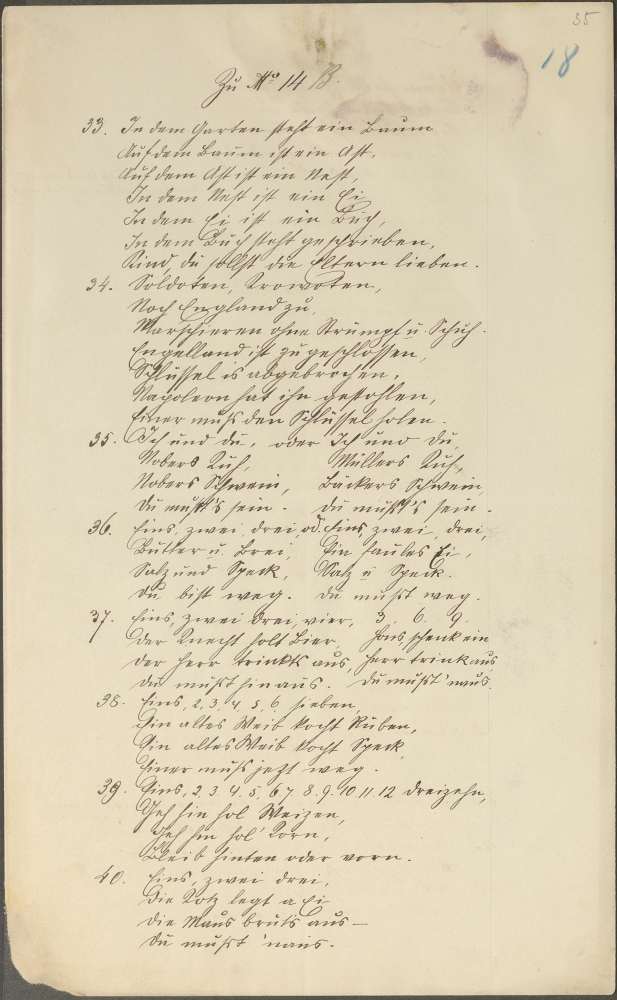 35
18
Zu No 14 B.
33. In dem Garten steht ein Baum
Auf dem Baum ist ein Ast,
Auf dem Ast ist ein Nest,
In dem Nest ist ein Ei
In dem Ei ist ein Buch,
In dem Buch steht geschrieben,
Kind, du sollst die Eltern lieben.
34. Soldaten, Krowoten,
Noch England zu,
Marschieren ohne Strümpf u Schuh.
Engelland ist zugeschlossen,
Schlüssel is abgebrochen.
Napoleon hat ihn gestohlen,
Einer muß den Schlüssel holen.
35. Ich und du, oder Ich und du,
Nobers Kuh, Müllers Kuh,
Nobers Schwein, Bäckers Schwein,
Du mußt's sein. du mußt's sein.
36. Eins, zwei, drei, od. Eins, zwei, drei,
Butter u. Brei, Ein faules Ei,
Salz und Speck, Salz u Speck.
Du bist weg. du mußt weg.
37. Eins, zwei drei, vier, 3. 6. 9.
Der Knecht holt Bier, Hans, schenk ein
Der Herr trinkts aus, Herr trink aus
du mußt hinaus. du mußt 'naus.
38. Eins, 2, 3, 4, 5, 6, sieben,
Ein altes Weib kocht Rüben,
Ein altes Weib kocht Speck,
Einer muß jetzt weg.
39. Eins, 2, 3. 4. 5. 6 7. 8. 9. 10 11. 12 dreizehn,
Geh hin hol Weizen,
Geh hin hol' Korn,
Bleib hinten oder vorn.
40. Eins, zwei drei,
die Kotz legt a Ei
die Maus bruts aus—
du mußt 'naus.